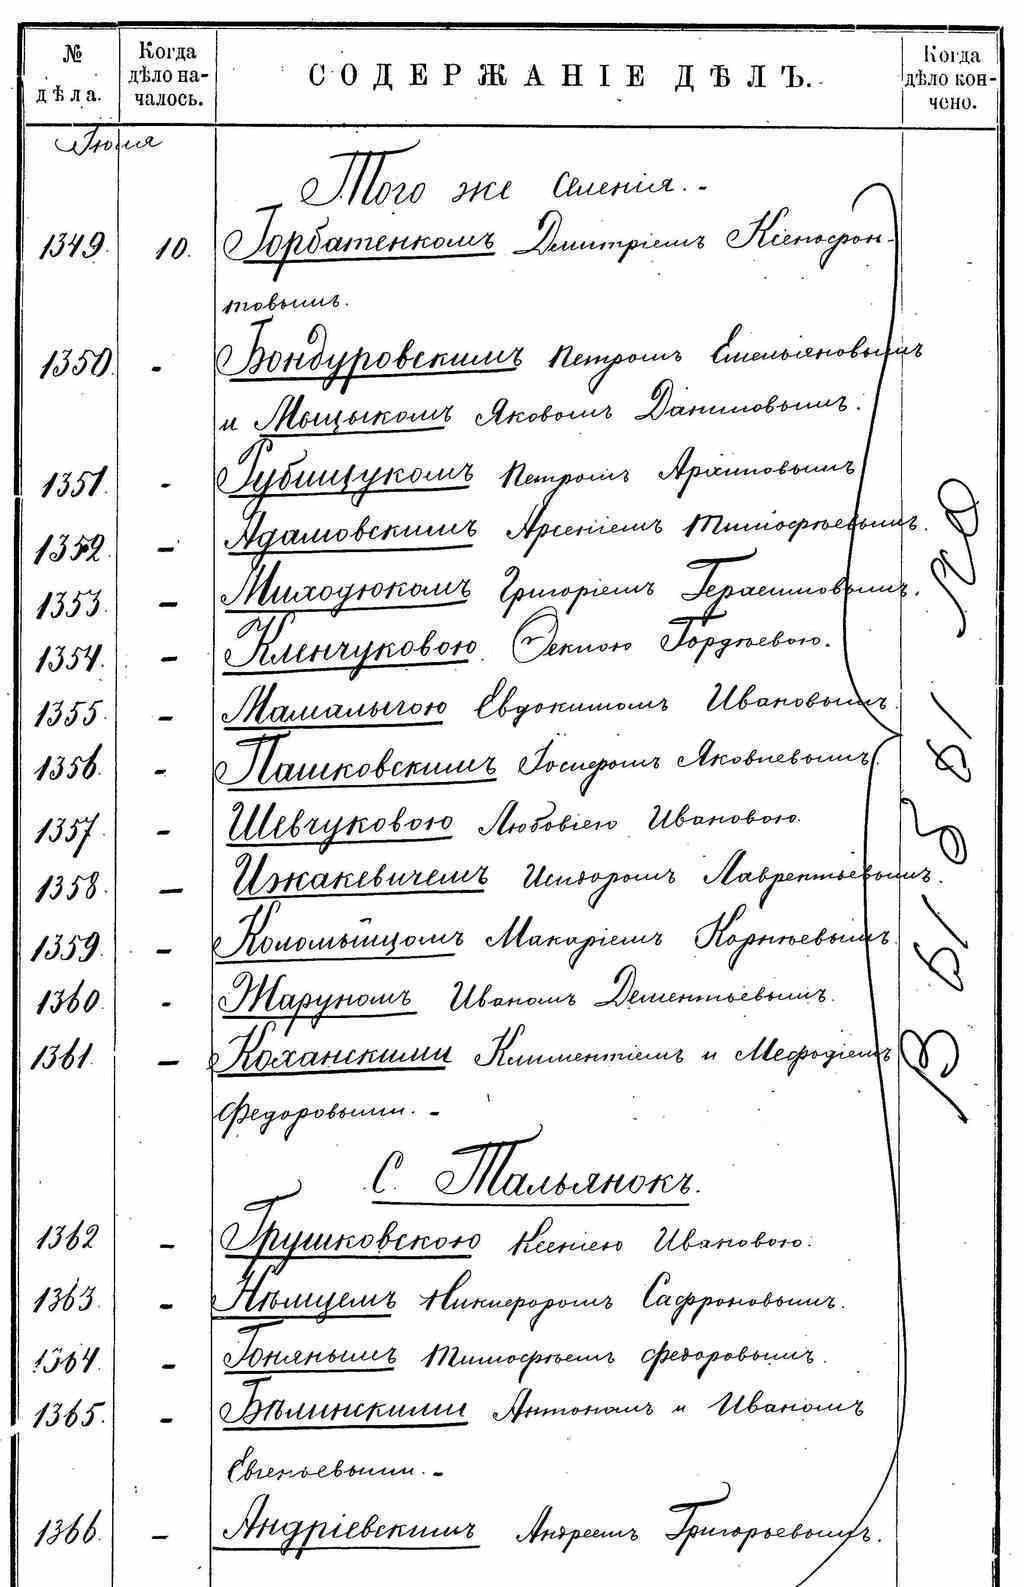 № дѣла.
Когда дѣло началось.
СОДЕРЖАНІЕ ДѢЛЪ.
Когда дѣло кончено.
Того же селенія.-
1349. 10. Горбатенкомъ Дмитріемъ Ксенофон-
товымъ.
1350. - Бондуровскимъ Петромъ Емельяновымъ
и Мыцыкомъ Яковомъ Даниловымъ.
1351. - Рубищукомъ Петромъ Архиповымъ
1352. - Адамовскимъ Арсеніемъ Тимофѣевымъ.
1353. - Миходюкомъ Григоріемъ Герасимовымъ.
1354. - Кленчуковою Гордѣевою.
1355. - Мамалыгою Евдокимомъ Ивановымъ.
1356. - Пашковскимъ Яковлевымъ.
1357. - Шевчуковою Любовію Ивановою.
1358. - Ижакевичемъ Исидоромъ Лаврентьевымъ.
1359. - Коломыйцомъ Макаріемъ Корнѣевымъ.
1360. - Жаруномъ Иваномъ Дементьевымъ.
1361. - Коханскими Климентіемъ и Мефодіемъ
Федоровыми.-
С. Тальянокъ.
1362 - Грушковскою Ксеніею Ивановою.
1363. - Нѣмцемъ Никифоромъ Сафроновымъ.
1364. - Гонянымъ Тимофѣемъ Федоровымъ.
1365. - Бѣлинскими Антономъ и Иваномъ
Евгеньевыми.-
1366. - Андріевскимъ Андреемъ Григорьевымъ.